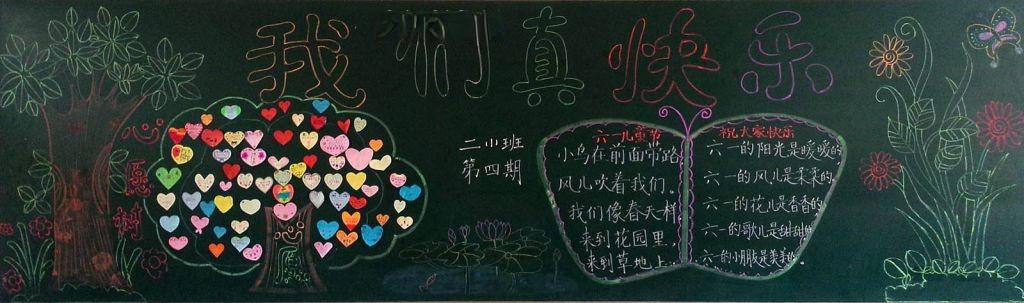 我们真快乐
心愿树
二小班
第四期
六一儿童节
小鸟在前面带路
风儿吹着我们。
我们像春天一样
来到花园里，
来到草地上。
祝大家快乐
六一的阳光是暖暖的
六一的风儿是柔柔的
六一的花儿是香香的
六一的歌儿是甜甜的
六一的小朋友是美美的